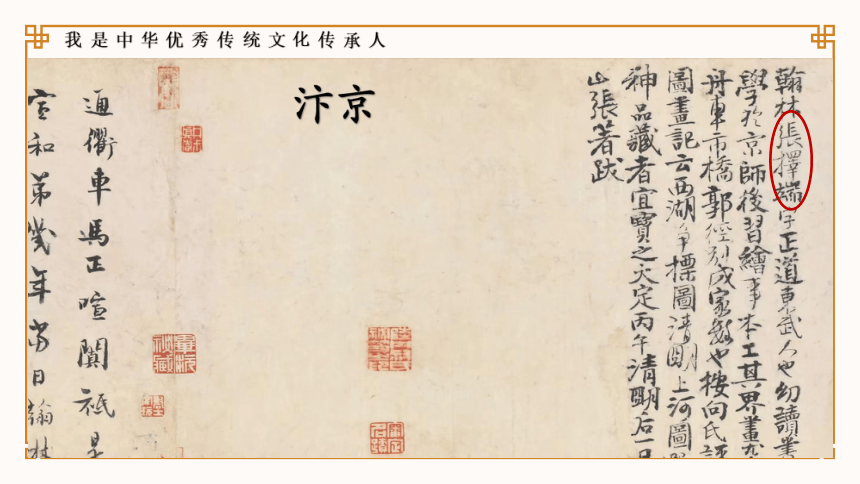 我是中华优秀传统文化传承人
汴京
翰林張擇端字正道東武人也幼讀書
學於京師後習繪事本工其界畫尤
舟車市橋郭徑別成家數也按向氏評
圖畫記云西湖爭標圖清明上河圖
神品藏者宜寶之大定丙午清明后一日
山張著跋
通衢車馬正喧闐祗是
宣和第幾年當日翰林